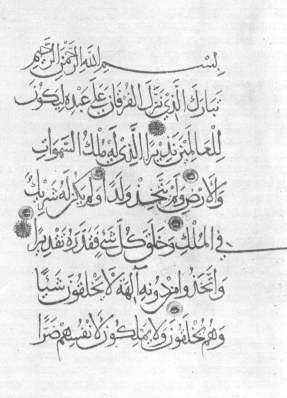 بسم الله الرحمن الرحيم
تبارك الذي نزل الفرقان على عبده ليكون
للعالمين نذيرا الذي له ملك السموات
والارض ولم يتخذ ولدا ولم يكن له شريك
في الملك وخلق كل شيء فقدره تقديرا
واتخذوا من دونه آلهة لا يخلقون شيئا
وهم يخلقون ولا يملكون لانفسهم ضرا